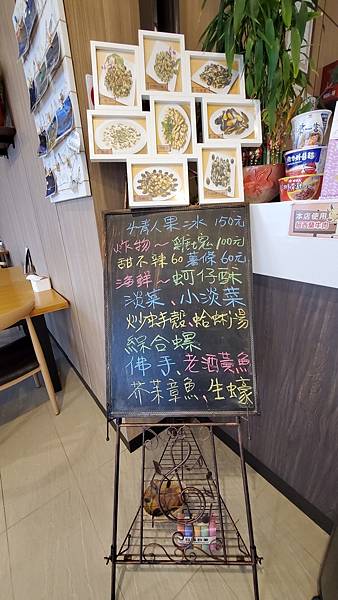 情人果冰 150元
炸物~雞塊 100元
甜不辣60 薯條60元
海鮮~蚵仔酥
淡菜、小淡菜
炒蛤、蛤蚌湯
綜合螺
佛手、老酒黃魚
芥茉章魚、生蠔
本店使用
紐西蘭牛肉